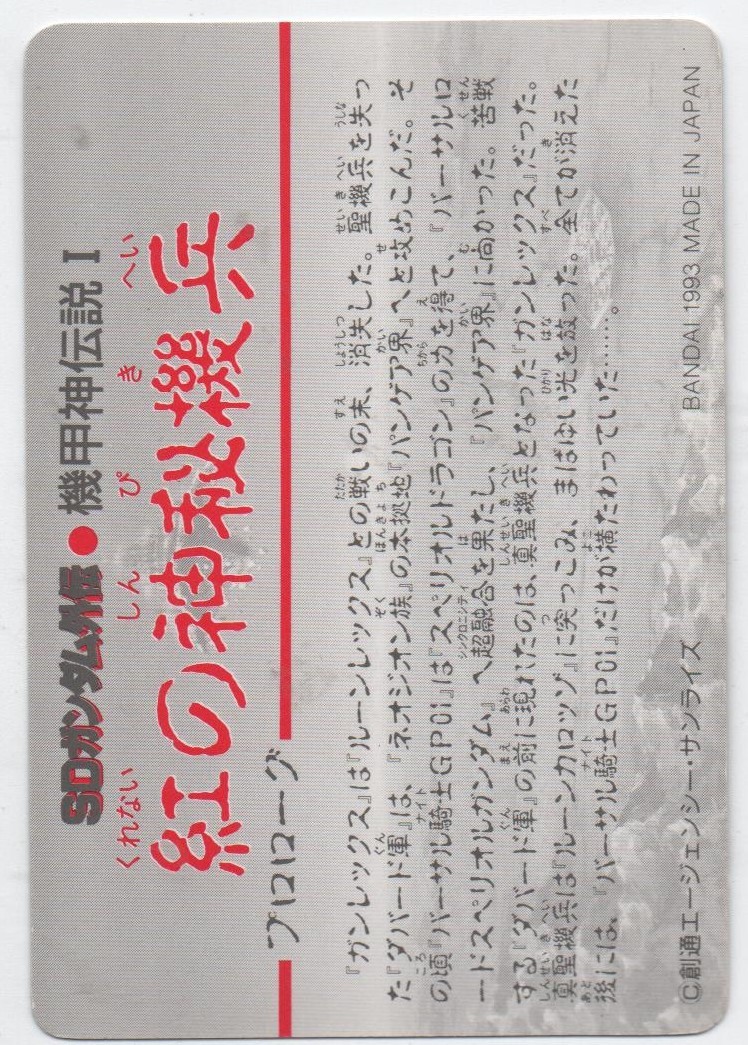 SDガンダム外伝●機甲神伝説Ⅰ
くれない しん ぴ き へい
紅の神秘機兵
プロローグ
『ガンレックス』は『ルーンレックス』との戦いの末、消失した。聖機兵を失っ
た『ダバード軍』は、『ネオジオン族』の本拠地『パンゲア界』へと攻めこんだ。そ
の頃『バーサル騎士GP01』は『スペリオルドラゴン』の力を得て、『バーサルロ
ードスペリオルガンダム』へ超融合を果たし、『パンゲア界』に向かった。苦戦
する『ダバード軍』の前に現れたのは、真聖機兵となった『ガンレックス』だった。
真聖機兵は『ルーンカロッゾ』に突っこみ、まばゆい光を放った。全てが消えた
後には、『バーサル騎士GP01』だけが横たわっていた……。
©創通エージェンシー・サンライズ
BANDAI 1993 MADE IN JAPAN